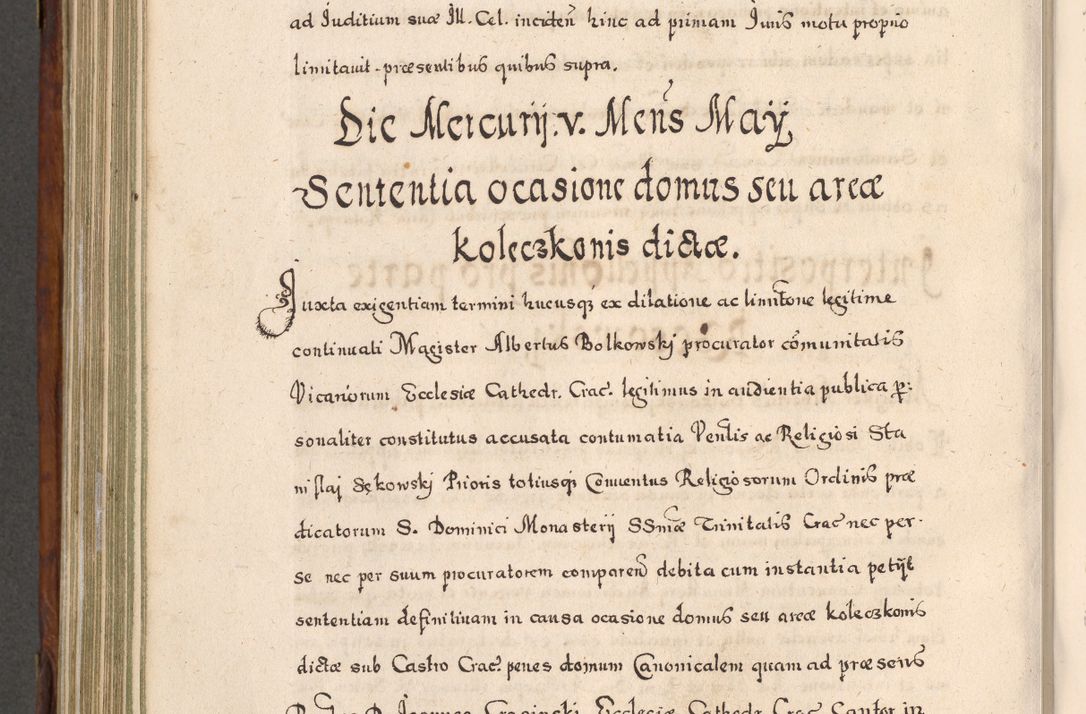 ad Juditium suæ Jll. Cel. inciden̄ hinc ad primam Juris motu proprio
limitavit præsentibus quibus supra.
Die Mercurij. v. Mens̄ Maÿ
Sententia ocasione domus seu areæ
koleczkonis dictæ.
Juxta exigentiam termini hucusqȝ ex dilatione ac limitt̄one legitime
continuati Magister Albertus Bolkowskj procurator cōmunitatis
Vicariorum Ecclesiæ Cathedr. Crac̄. legitimus in audientia publica p̱:
sonaliter constitutus accusata contumatia Ven̄lis ac Religiosi Sta
nislaj Sękowskj Prioris totiusqȝ Conventus Religiosorum Ordinis præ
dicatorum S. Dominici Monasterij SSmæ Trinitatis Crac̄ nec per
se nec per suum procuratorem comparen̄ debita cum instantia petÿt
sententiam definitivam in causa ocasione domus seu areæ koleczkonis
dictæ sub Castro Crac̄. penes domum Canonicalem quam ad præsens
D. Joannes Ecclesiæ Cathedr Crac̄ Cantor in